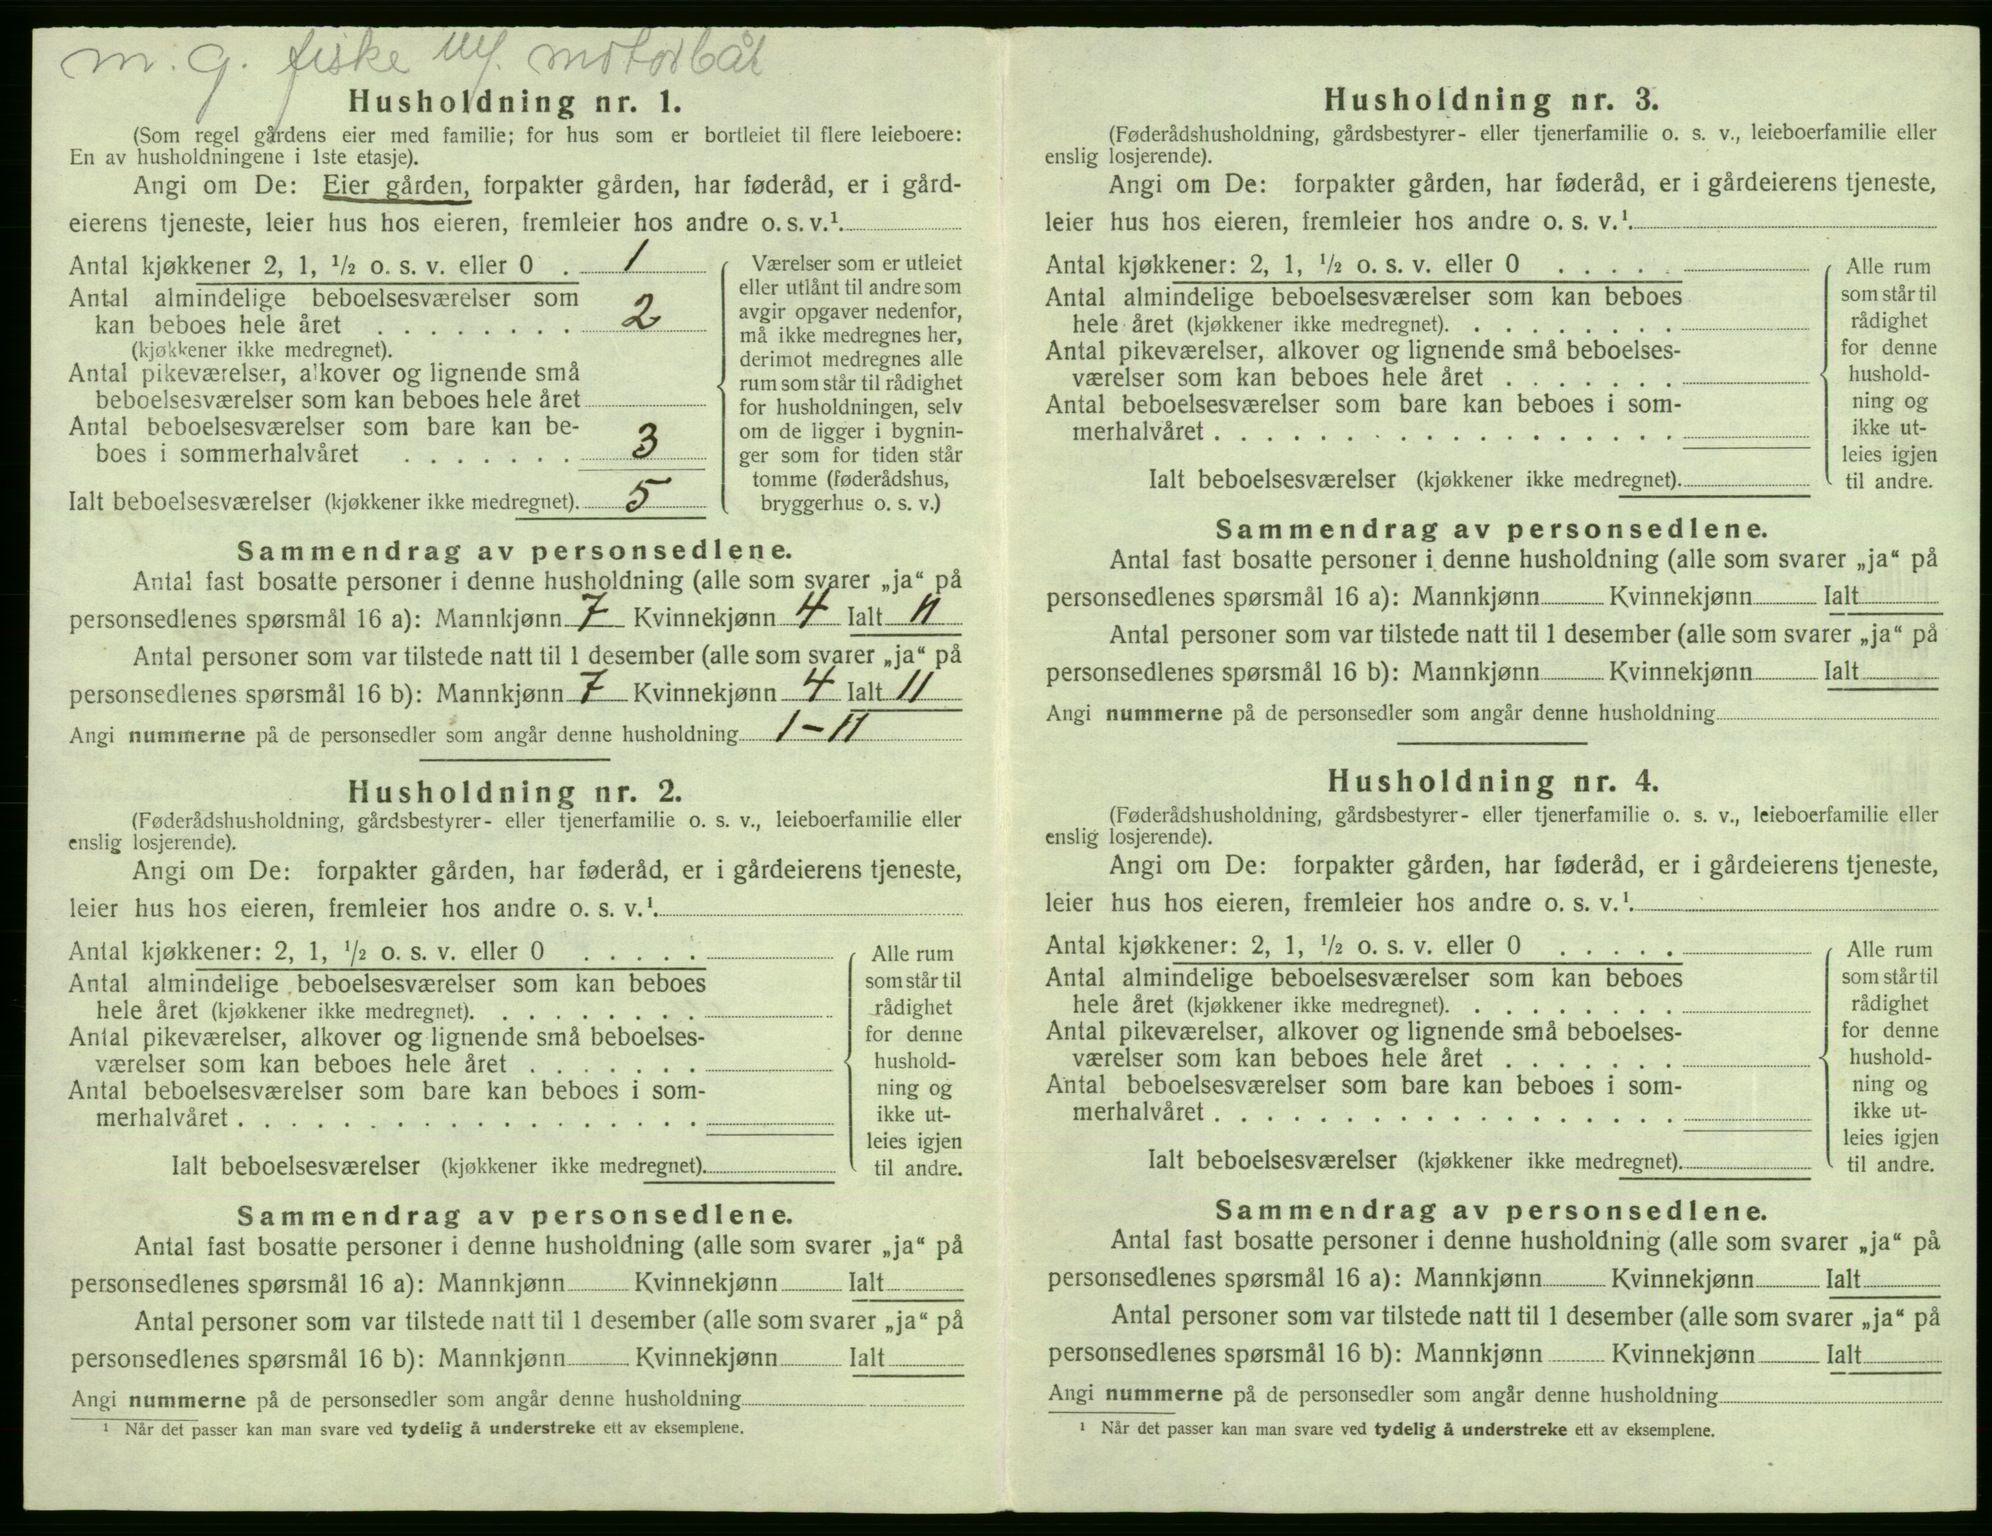 m. g. fiske m/ motorbåt
Husholdning nr. 1.
(Som regel gårdens eier med familie; for hus som er bortleiet til flere leieboere:
En av husholdningene i 1ste etasje).
Angi om De: Eier gården, forpakter gården, har føderåd, er i gård-
eierens tjeneste, leier hus hos eieren, fremleier hos andre o. s. v.¹
Antal kjøkkener 2, 1, ½ o. s. v. eller 0 . 1
Antal almindelige beboelsesværelser som
kan beboes hele året . . . . . . . . 2
(kjøkkener ikke medregnet).
Antal pikeværelser, alkover og lignende små
beboelsesværelser som kan beboes hele året
Antal beboelsesværelser som bare kan be-
boes i sommerhalvåret . . . . . . . 3
Ialt beboelsesværelser (kjøkkener ikke medregnet). 5
Værelser som er utleiet
eller utlånt til andre som
avgir opgaver nedenfor,
må ikke medregnes her,
derimot medregnes alle
rum som står til rådighet
for husholdningen, selv
om de ligger i bygnin-
ger som for tiden står
tomme (føderådshus,
bryggerhus o. s. v.)
Sammendrag av personsedlene.
Antal fast bosatte personer i denne husholdning (alle som svarer „ja“ på
personsedlenes spørsmål 16 a): Mannkjønn 7 Kvinnekjønn 4 Ialt 11
Antal personer som var tilstede natt til 1 desember (alle som svarer „ja“ på
personsedlenes spørsmål 16 b): Mannkjønn 7 Kvinnekjønn 4 Ialt 11
Angi nummerne på de personsedler som angår denne husholdning 1 – 11
Husholdning nr. 2.
(Føderådshusholdning, gårdsbestyrer- eller tjenerfamilie o. s. v., leieboerfamilie eller
enslig losjerende).
Angi om De: forpakter gården, har føderåd, er i gårdeierens tjeneste,
leier hus hos eieren, fremleier hos andre o. s. v.¹.
Antal kjøkkener: 2, 1, ½ o. s. v. eller 0 . . . . .
Antal almindelige beboelsesværelser som kan beboes
hele året (kjøkkener ikke medregnet). . . . . . . . .
Antal pikeværelser, alkover og lignende små beboelses-
værelser som kan beboes hele året . . . . . . .
Antal beboelsesværelser som bare kan beboes i som-
merhalvåret . . . . . . . . . . . . . . . . . .
Ialt beboelsesværelser (kjøkkener ikke medregnet).
Alle rum
som står til
rådighet
for denne
hushold-
ning og
ikke ut-
leies igjen
til andre.
Sammendrag av personsedlene.
Antal fast bosatte personer i denne husholdning (alle som svarer „ja“ på
personsedlenes spørsmål 16 a): Mannkjønn Kvinnekjønn Ialt
Antal personer som var tilstede natt til 1 desember (alle som svarer „ja“ på
personsedlenes spørsmål 16 b): Mannkjønn Kvinnekjønn Ialt
Angi nummerne på de personsedler som angår denne husholdning
¹ Når det passer kan man svare ved tydelig å understreke ett av eksemplene.
Husholdning nr. 3.
(Føderådshusholdning, gårdsbestyrer- eller tjenerfamilie o. s. v., leieboerfamilie eller
enslig losjerende).
Angi om De: forpakter gården, har føderåd, er i gårdeierens tjeneste,
leier hus hos eieren, fremleier hos andre o. s. v.¹.
Antal kjøkkener: 2, 1, ½ o. s. v. eller 0 . . . . .
Antal almindelige beboelsesværelser som kan beboes
hele året (kjøkkener ikke medregnet). . . . . . . . .
Antal pikeværelser, alkover og lignende små beboelses-
værelser som kan beboes hele året . . . . . . .
Antal beboelsesværelser som bare kan beboes i som-
merhalvåret . . . . . . . . . . . . . . . . . .
Ialt beboelsesværelser (kjøkkener ikke medregnet).
Alle rum
som står til
rådighet
for denne
hushold-
ning og
ikke ut-
leies igjen
til andre.
Sammendrag av personsedlene.
Antal fast bosatte personer i denne husholdning (alle som svarer „ja“ på
personsedlenes spørsmål 16 a): Mannkjønn Kvinnekjønn Ialt
Antal personer som var tilstede natt til 1 desember (alle som svarer „ja“ på
personsedlenes spørsmål 16 b): Mannkjønn Kvinnekjønn Ialt
Angi nummerne på de personsedler som angår denne husholdning
Husholdning nr. 4.
(Føderådshusholdning, gårdsbestyrer- eller tjenerfamilie o. s. v., leieboerfamilie eller
enslig losjerende).
Angi om De: forpakter gården, har føderåd, er i gårdeierens tjeneste,
leier hus hos eieren, fremleier hos andre o. s. v.¹.
Antal kjøkkener: 2, 1, ½ o. s. v. eller 0 . . . . .
Antal almindelige beboelsesværelser som kan beboes
hele året (kjøkkener ikke medregnet). . . . . . . . .
Antal pikeværelser, alkover og lignende små beboelses-
værelser som kan beboes hele året . . . . . . .
Antal beboelsesværelser som bare kan beboes i som-
merhalvåret . . . . . . . . . . . . . . . . . .
Ialt beboelsesværelser (kjøkkener ikke medregnet).
Alle rum
som står til
rådighet
for denne
hushold-
ning og
ikke ut-
leies igjen
til andre.
Sammendrag av personsedlene.
Antal fast bosatte personer i denne husholdning (alle som svarer „ja“ på
personsedlenes spørsmål 16 a): Mannkjønn Kvinnekjønn Ialt
Antal personer som var tilstede natt til 1 desember (alle som svarer „ja“ på
personsedlenes spørsmål 16 b): Mannkjønn Kvinnekjønn Ialt
Angi nummerne på de personsedler som angår denne husholdning
¹ Når det passer kan man svare ved tydelig å understreke ett av eksemplene.